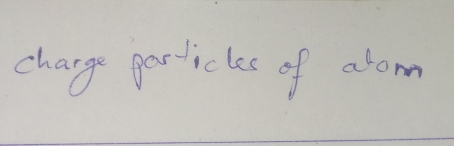 charge particles of atom